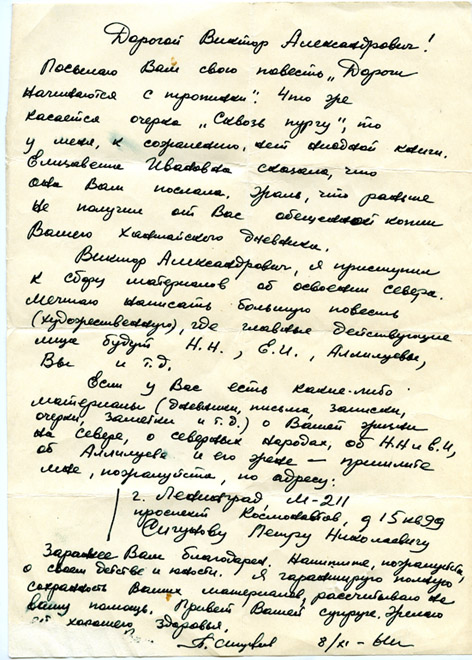 Дорогой Виктор Александрович!
Посылаю Вам свою повесть „Дороги
начинаются с тропинки". Что же
касается очерка „Сквозь пургу", то
у меня, к сожалению, нет ни одной книги.
Елизавета Ивановна сказала, что
она Вам послала. Жаль, что раньше
не получил от Вас обещанной копии
Вашего Хантайского дневника.
Виктор Александрович, я приступил
к сбору материалов об освоении севера.
Мечтаю написать большую повесть
(художественную), где главные действующие
лица будут Н.Н., Е.И., Аллилуевы,
Вы и т.д.
Если у Вас есть какие-либо
материалы (дневники, письма, записки,
очерки, заметки и т.д.) о Вашей жизни
на севере, о северных народах, об Н.Н и Е.И,
об Аллилуева и его жене — пришлите
мне, пожалуйста, по адресу:
г. Ленинград М-211
проспект Космонавтов, д 15 кв 99
Сигунову Петру Николаевичу
Заранее Вам благодарен. Напишите, пожалуйста,
о своем детстве и юности. Я гарантирую полную
сохранность Ваших материалов, рассчитываю на
вашу помощь. Привет Вашей супруге. Желаю
хорошего здоровья!
П. Сигунов 8/XI-